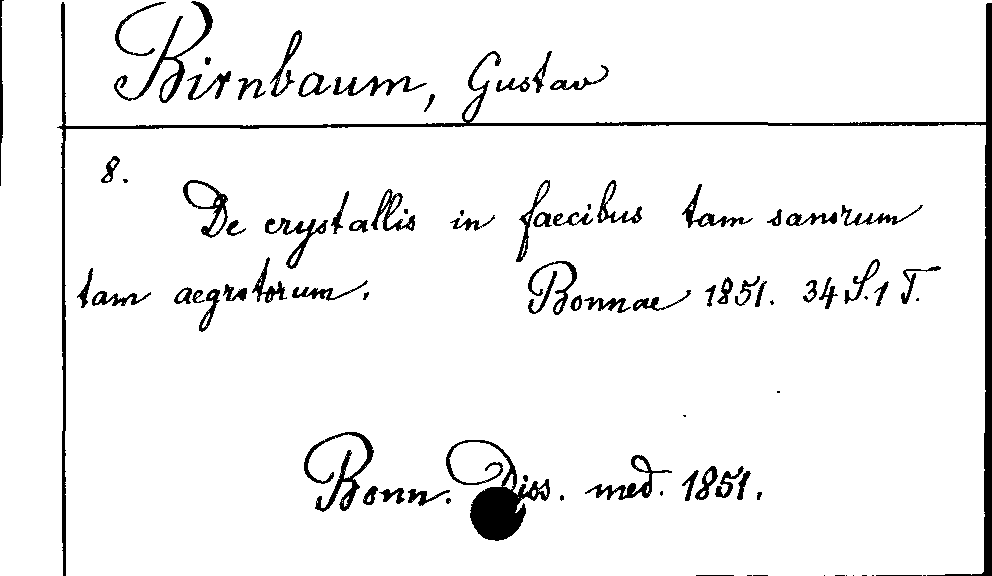 Birnbaum, Gustav
8.
De crystallis in faecibus tam sanorum
tam aegrotorum. Bonnae 1851. 34 S. 1 T.
Bonn. Diss. med. 1851.